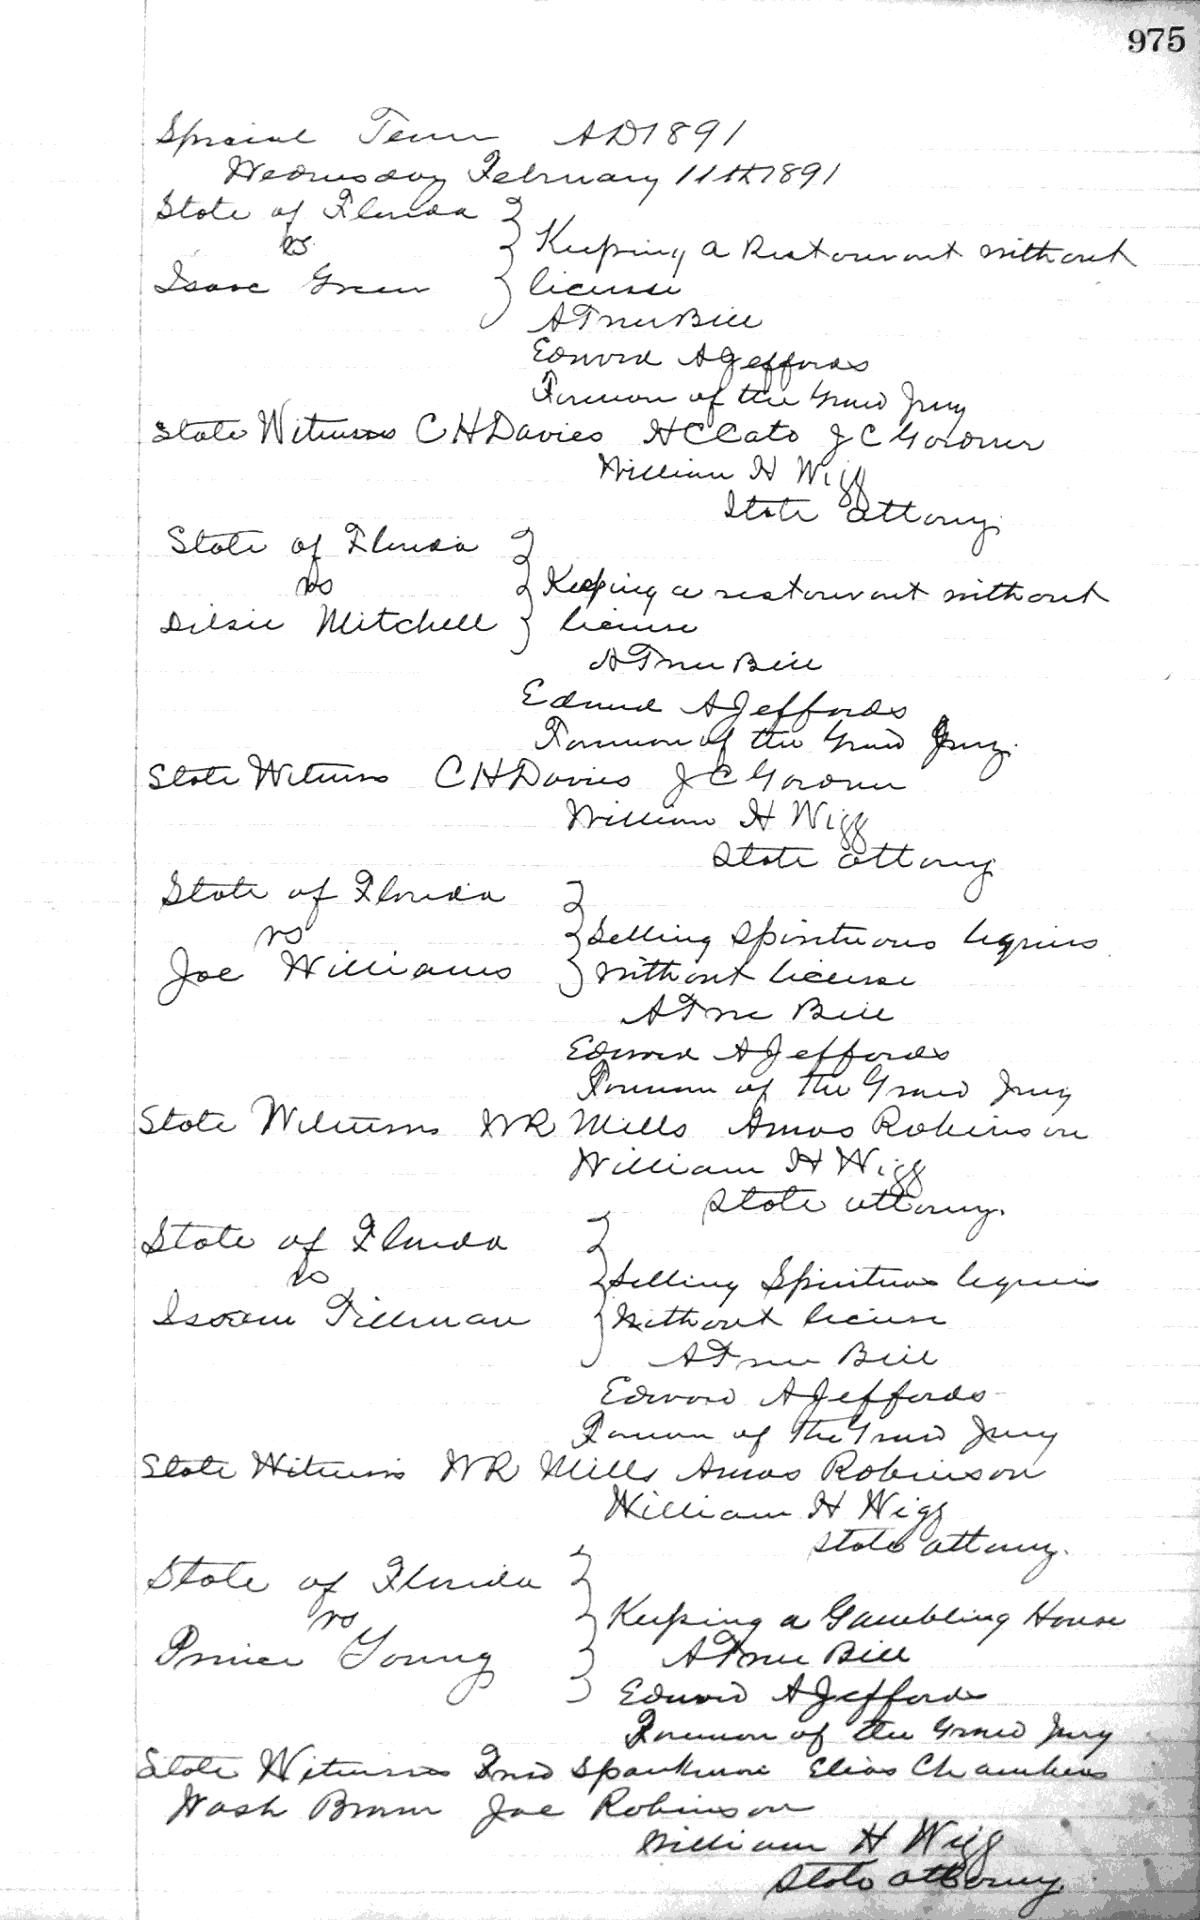 975
Special Term AD1891
Wednesday February 11th 1891
State of Florida
vs
Keeping a Restaurant without
Isaac Green
license
A True Bill
Edward A Jeffords
Foreman of the Grand Jury
State Witness C H Davies H C Cato J C Gardner
William H Wigg
State attorny
State of Florida
vs
Keeping a restaurant without
Dilsie Mitchell
license
A True Bill
Edward A Jeffords
Foreman of the Grand Jury
State Witness C H Davies J C Gardner
William H Wigg
State attorny
State of Florida
vs
Selling Spirituous liquors
Joe Williams
without license
A True Bill
Edward A Jeffords
Foreman of the Grand Jury
State Witness W R Mills Amos Robinson
William H Wigg
State attorny.
State of Florida
vs
Selling Spirituous liquors
Isom Tillman
Without license
A True Bill
Edward A Jeffords
Foreman of the Grand Jury
State Witness W R Mills Amos Robinson
William H Wigg
State attorny.
State of Florida
vs
Keeping a Gambling House
Prince Young
A True Bill
Edward A Jeffords
Foreman of the Grand Jury
State Witness Fred Elias Chambers
Wash Brown Joe Robinson
William H Wigg
State attorny